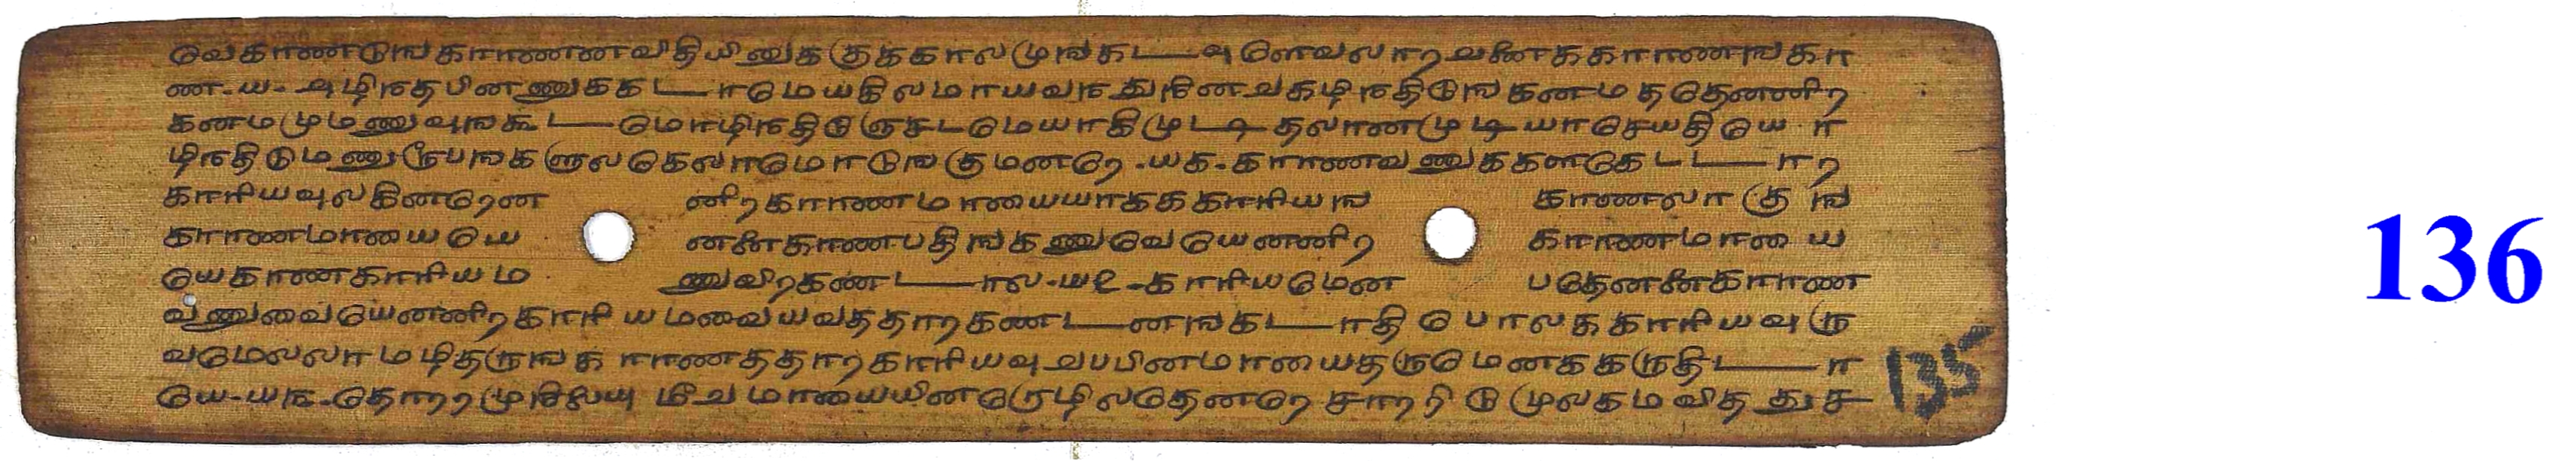 வெகாணடுஙகாாணணவிதியினுககுககாலமுஙகடவுளெவலாறவனைககாாணஙகா
ண-ய-அழிநதபினணுககடாமெயகிலமாயவநதுனைவகழிநதிடுஙகனமததெனனிற
கனமமுமணுவுஙகூடமொழிநதிடுஞசடமெயாகிமுடிதலானமுடியாசெயதியொ
ழிநதிடுமணுரூபஙகளுலகெலாமொடுஙகுமனறெ-யக-காாணவணுககளகெடடாற
காரியவுலகினறென னிறகாாணமாயையாகககாரியங காணலாகுங
காாணமாயையெ னனைகாணபதிஙகணுவெயெனனிற காாணமாயை
யெகாணகாரியம ணுவிறகணடால-யஉ-காரியமென பதெனனைகாாண
வணுவையெனனிறகாரியமவையவததாறகணடனஙகடாதிபொலககாரியவுரு
வமெலலாமழிதருஙகாாணததாறகாரியவுவபபினமாயைதருமெனககருதிடா
யெ-யங-தொறறமுநிலையுமீசமாயையினருெழிலதெனறெசாறறிடுமுலகமவிததுச
135
136